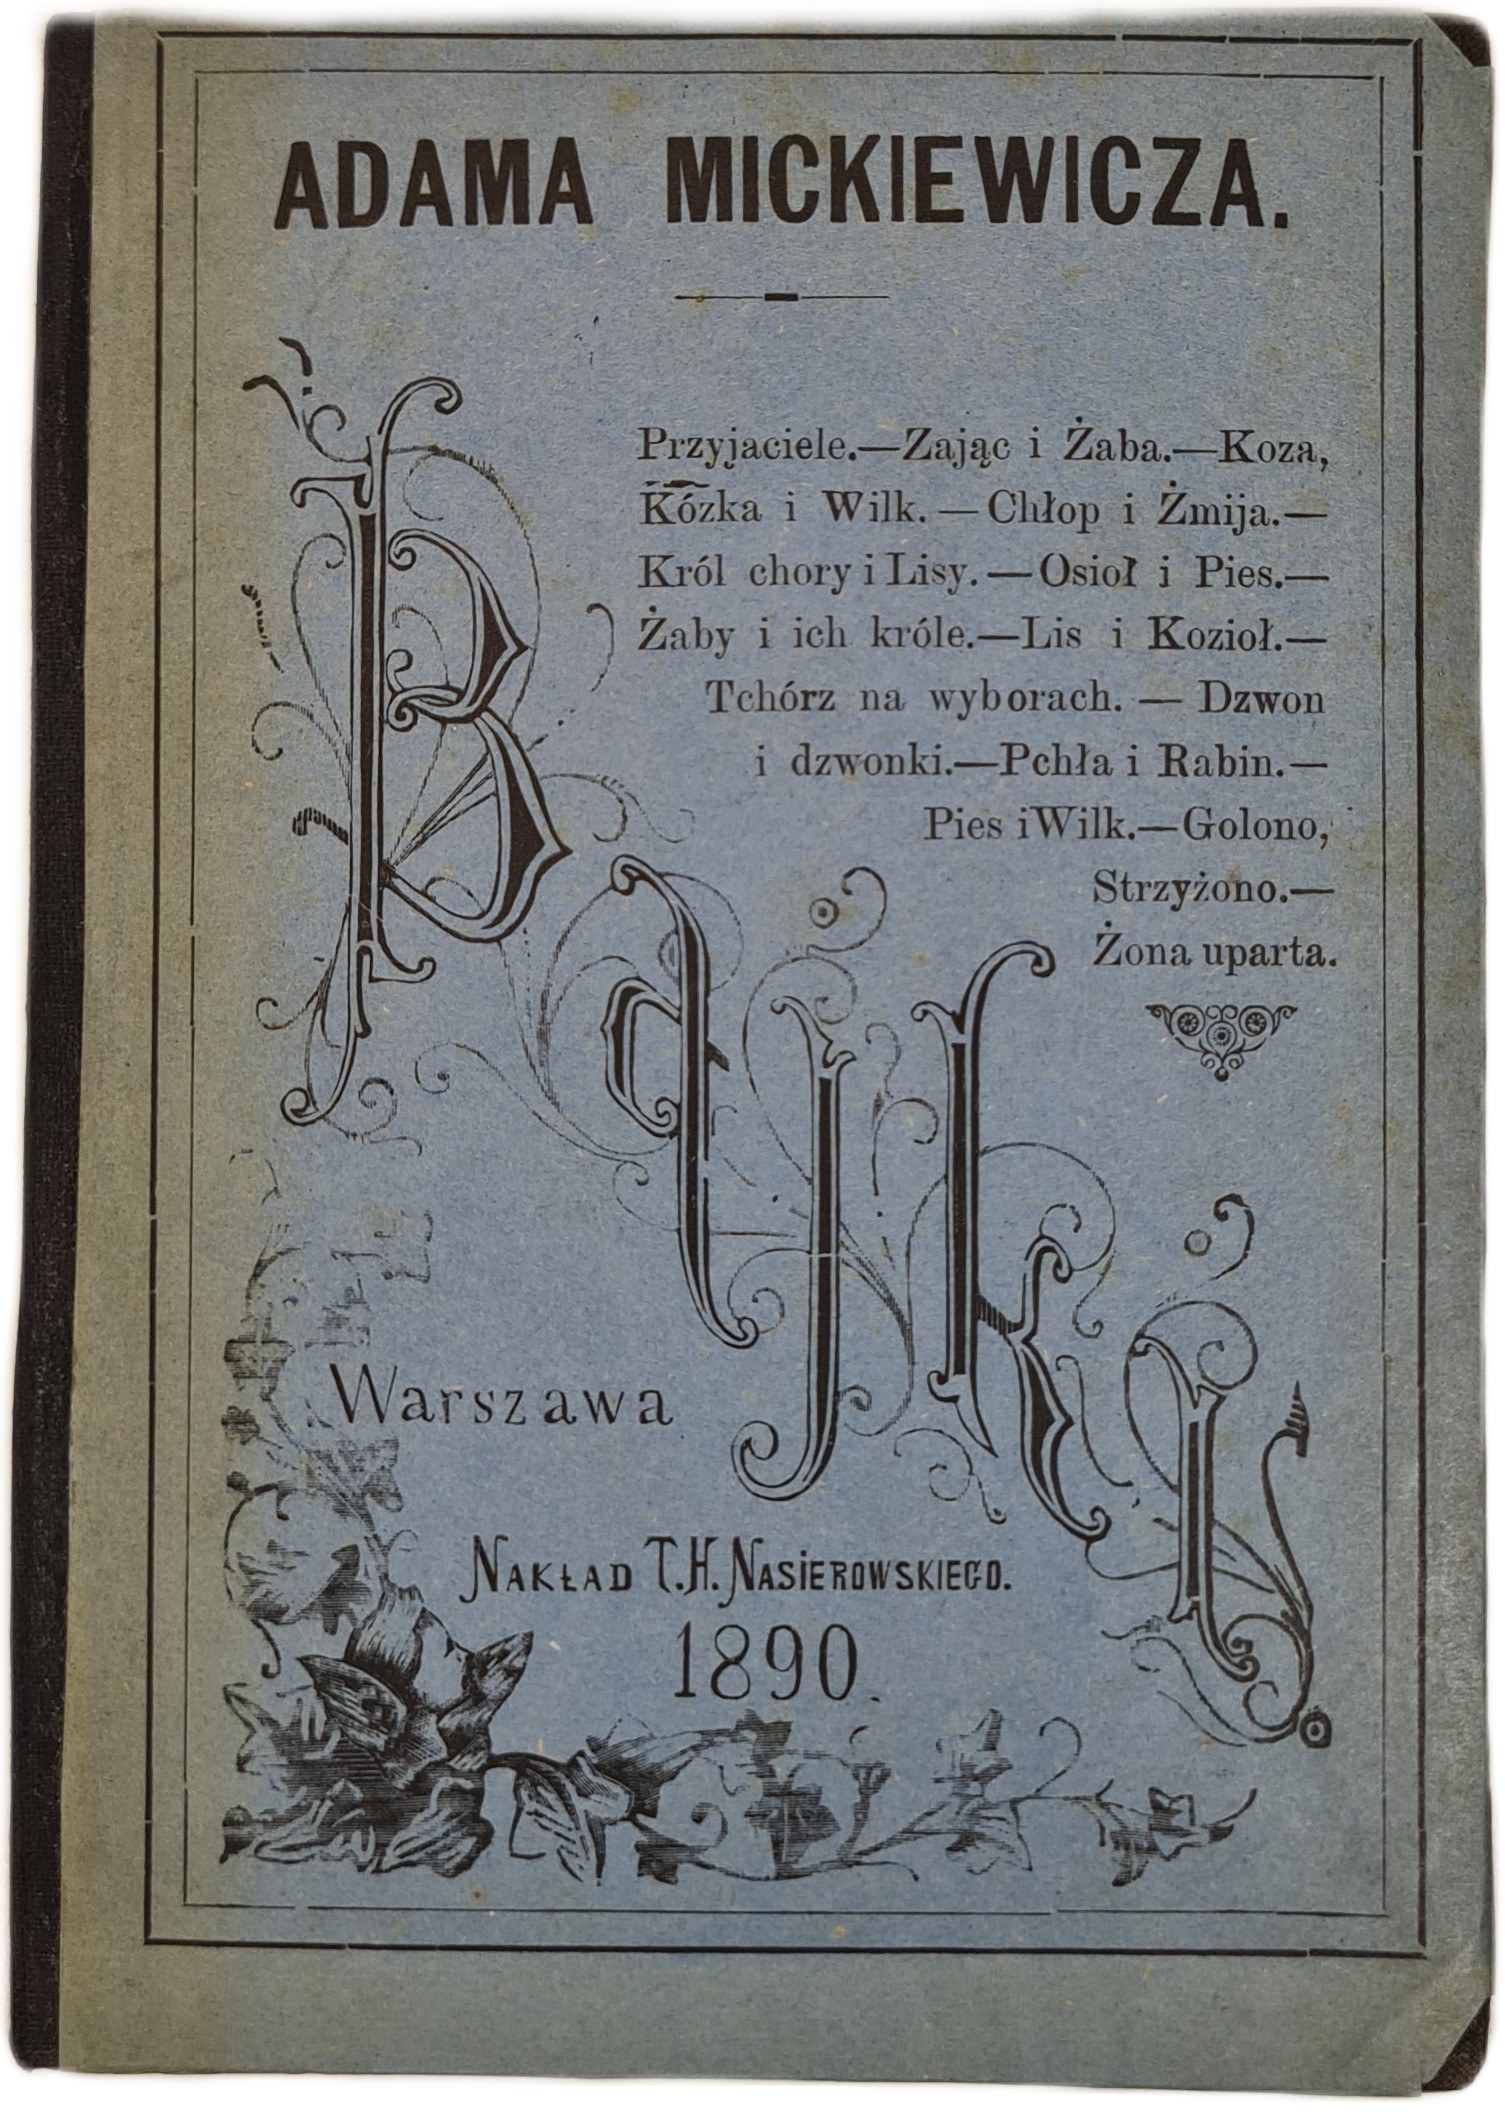 ADAMA MICKIEWICZA.
Przyjaciele.—Zając i Żaba.—Koza,
Kózka i Wilk.—Chłop i Żmija.—
Król chory i Lisy.—Osioł i Pies.—
Żaby i ich króle.—Lis i Kozioł.—
Tchórz na wyborach.—Dzwon
i dzwonki.—Pchła i Rabin.—
Pies i Wilk.—Golono,
Strzyżono.—
Żona uparta.
Bajki
Warszawa
NAKŁAD T. H. NASIEROWSKIEGO.
1890.